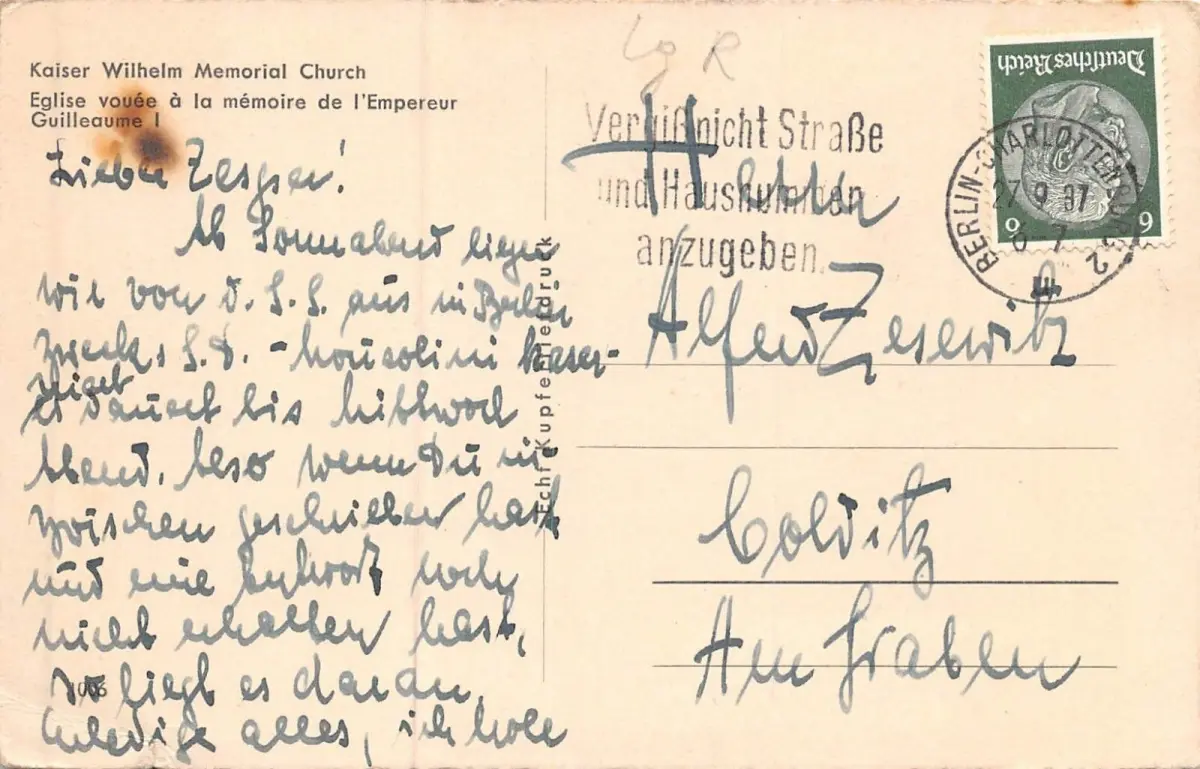 Kaiser Wilhelm Memorial Church
Eglise vouée à la mémoire de l'Empereur
Guilleaume I
Lieber
Ab Sonnabend liegen
wir von d. S.S. aus in Berlin
Zwecks
es dauert bis Mittwoch
Abend. Also wenn Du in-
zwischen geschrieben hast
und eine Antwort noch
nicht erhalten hast,
so liegt es daran.
Erledige alles, ich hole
1006
Echt Kupfertiefdruck
Lg R
Vergiß nicht Straße
und Hausnummer
anzugeben.
Deutsches Reich
6 6
BERLIN-CHARLOTTENBURG 2
27.9.37
6-7
Herrn
Alfred Zesewitz
Colditz
Am Graben